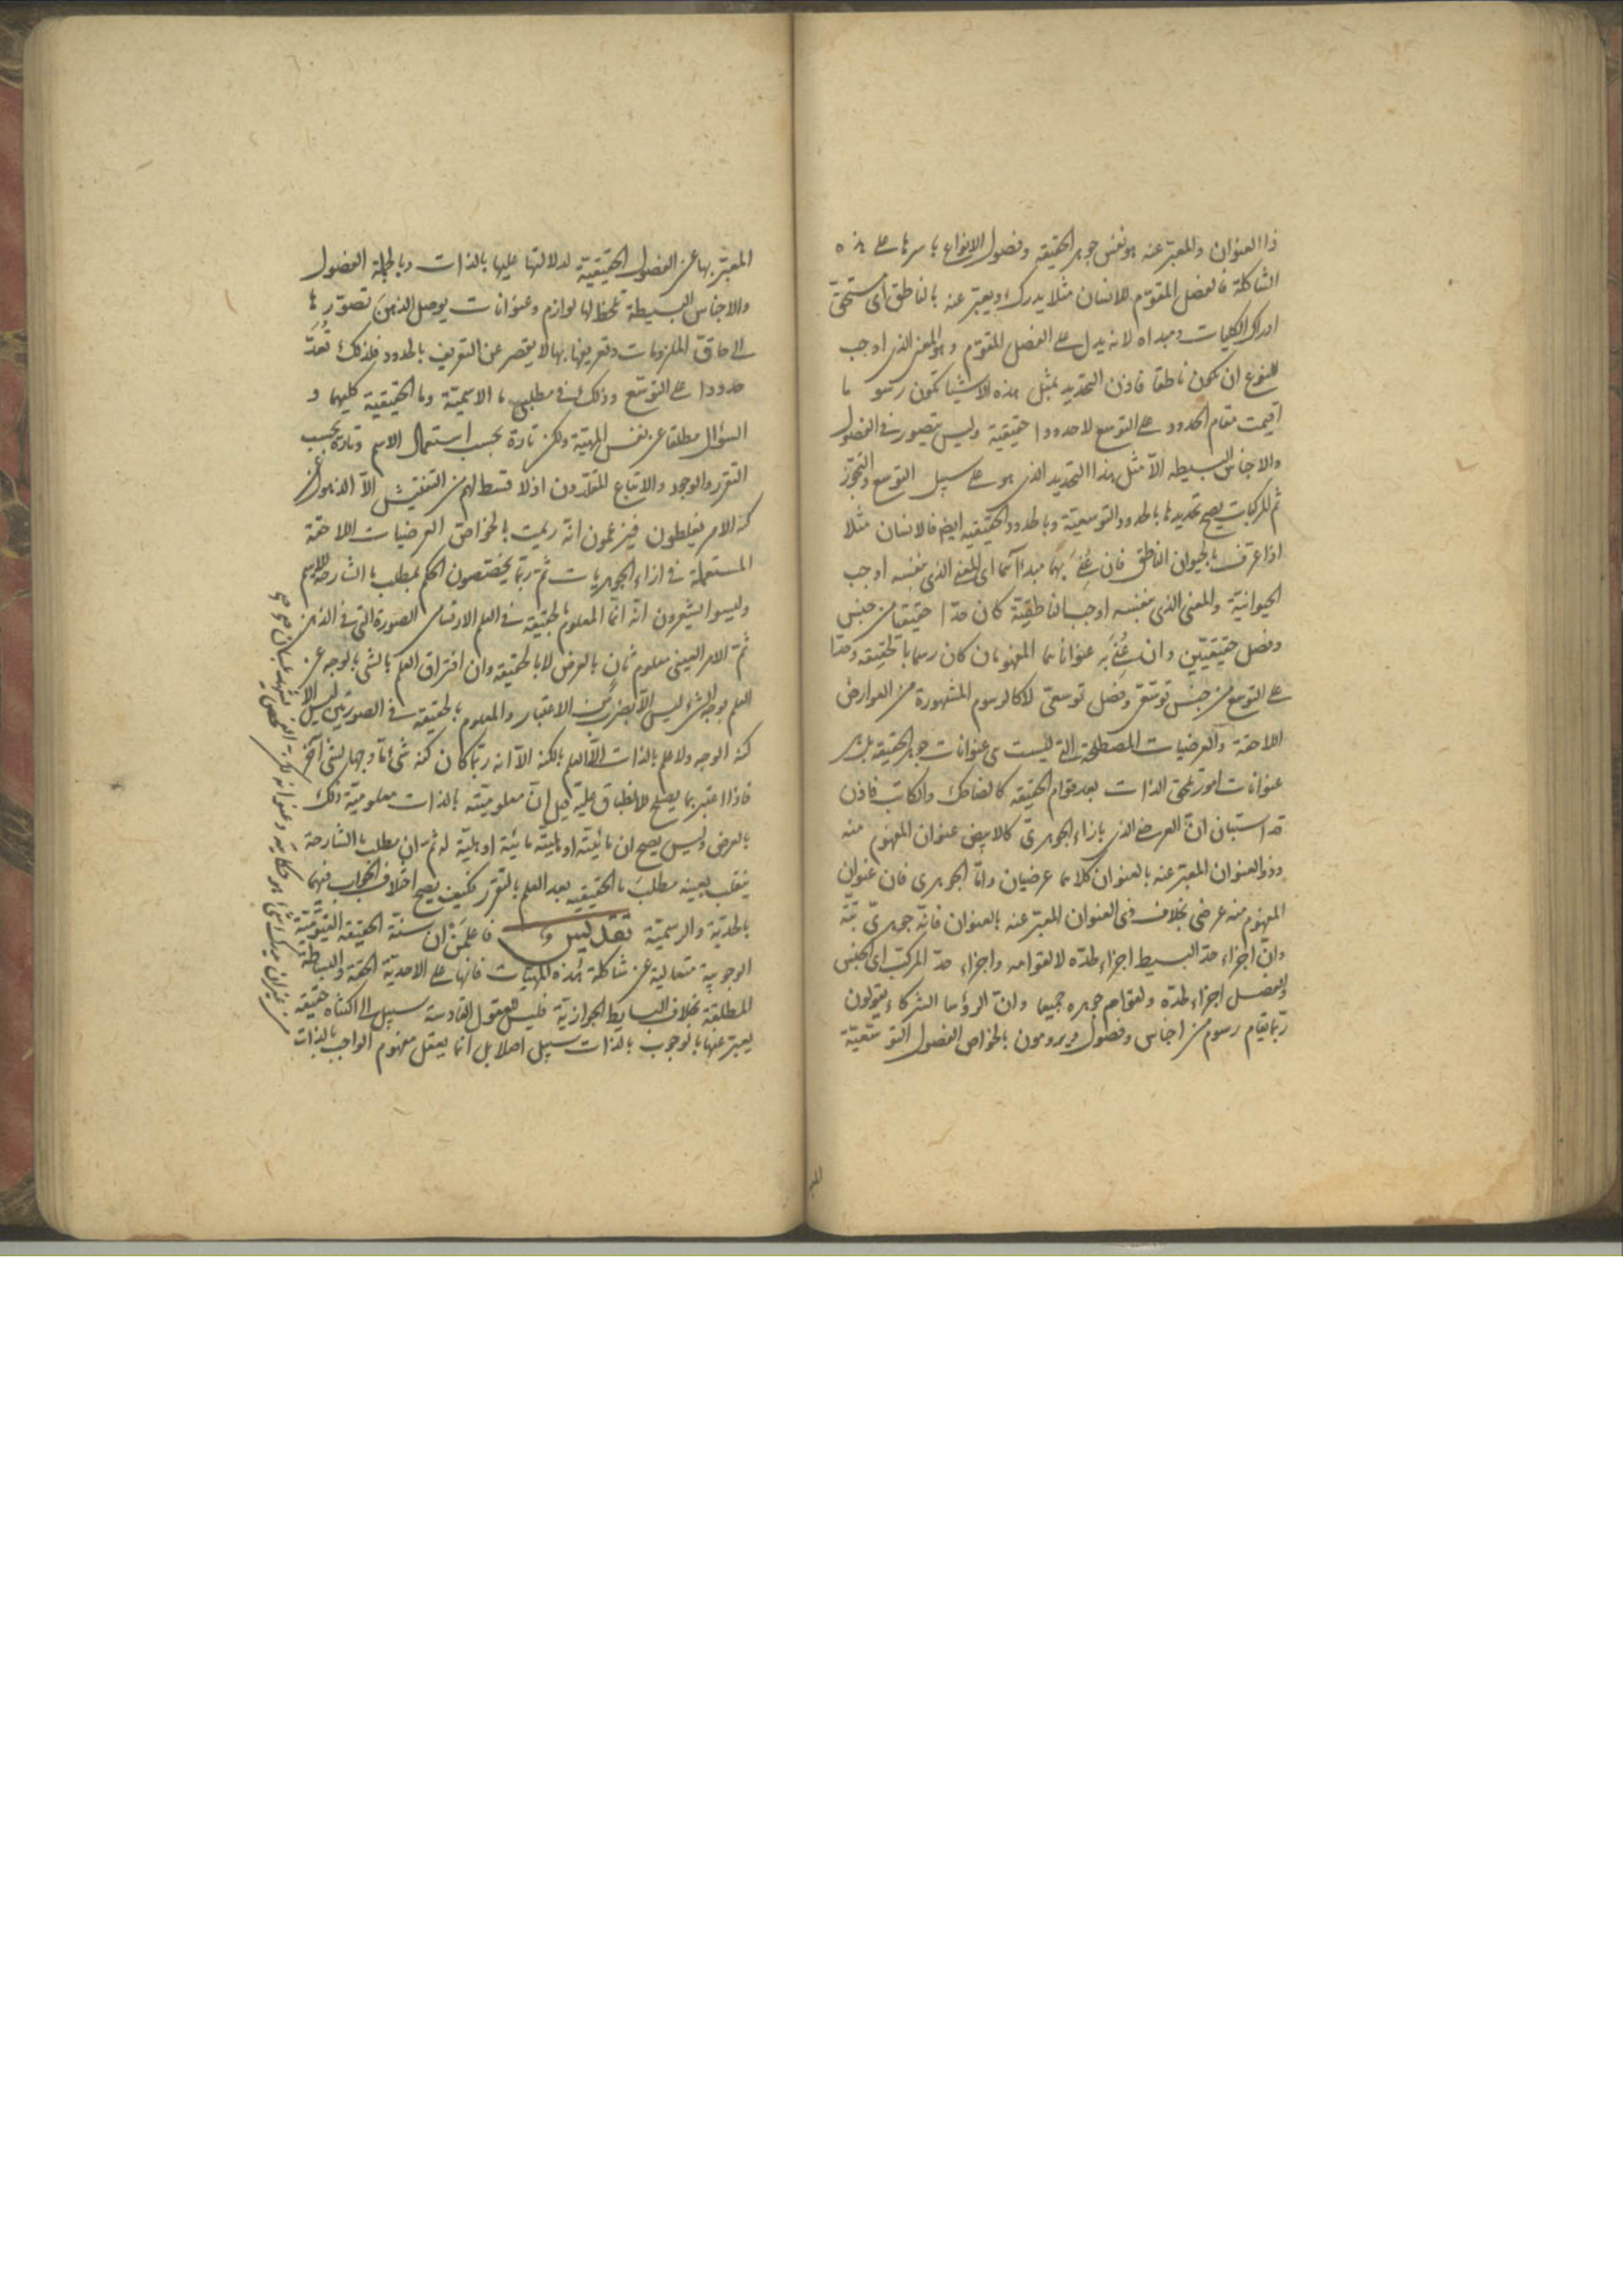 ذا العنوان والمعبّر عنه هو نفس جوهر الحقيقة وفصول الانواع باسرها على هذه
الشاكلة فالفصل المقوّم للانسان مثلا يدرك ويعبّر عنه بالناطق اى مستحقّ
ادراك الكليات ومبداه لانه يدل على الفصل المقوّم وهو المعنى الذى اوجب
للنوع ان يكون ناطقا فاذن التحديد بمثل هذه الاشيا تكون رسو ما
اقيمت مقام الحدود على التوسع لا حدودا حقيقية وليس يتصور فى الفصول
والاجناس البسيطه الّا مثل هذا التحديد الذى هو على سبيل التوسع والتجوّز
ثم المركبات يصح تحديدها بالحدود التوسعيّة وبالحدود الحقيقيه ايض فالانسان مثلا
اذا عرّف بالحيوان الناطق فان عُنِىَ بهما مبدا آهما اى المعنى الذى بنفسه اوجب
الحيوانيّة والمعنى الذى بنفسه اوجب الناطقيّة كان حدّا حقيقيا من جنس
وفصل حقيقيّين وان عُنِىَ به عنواناهما المفهومان كان رسما بالحقيقه وحدّا
على التوسع من جنس توسّعى وفصل توسعى لا كالرسوم المشهورة من العوارض
اللاحقة والعرضيات المصطلحة التى ليست هى عنوانات جوهر الحقيقه بل هى
عنوانات امور تلحق الذات بعد قوام الحقيقه كالضاحك والكاتب فاذن
قد استبان انّ العرضى الذى بازاء الجوهرىّ كالابيض عنوان المفهوم منه
وذو العنوان المعبّر عنه بالعنوان كلاهما عرضيان وامّا الجوهرى فان عنوان
المفهوم منه عرضى بخلاف ذى العنوان المعبّر عنه بالعنوان فانّه جوهرىّ بتّة
وانّ اجزاء حدّ البسيط اجزاء لحدّه لا لقوامه واجزاء حدّ المركّب اى الجنس
والفصل اجزاء لحدّه ولقوام جوهره جميعا وانّ الرؤسا الشركاء يقولون
ربّما يقام رسوم من اجناس وفصول ويرومون بالخواص الفصول التوسّعيّة
المعبّر بها عن الفصول الحقيقيّة لدلالتها عليها بالذات وبالجملة الفصول
والاجناس البسيطة تلحظ لها لوازم وعنوانات يوصل الذهن تصوّرها
الى حاقّ الملزومات وتعريفها بها لا يقصر عن التعريف بالحدود فلذلك تُعَدّ
حدودا على التوسّع وذلك فى مطلبى ما الاسميّة وما الحقيقية كليهما و
السؤال مطلقا عن نفس المهيّة ولكن تارة بحسب استعمال الاسم وتارة بحسب
التقرر والوجود والاتباع المقلّدون اذ لا قسط لهم من التفتيش الّا الذهول عن
كنه الامر يغلطون فيزعمون انّه ريمت بالخواصّ العرضيات اللاحقة
المستعملة فى ازاء الجوهريات ثمّ ربّما يختصّون الحكم بمطلب ما الشارحة للاسم
وليسوا يشعرون انّه انّما المعلوم بالحقيقه فى العلم الارتسامى الصورة التى فى الذهن
ثمّ الامر العينى معلوم ثانٍ بالعرض لا بالحقيقه وان افتراق العلم بالشى بالوجه عن
العلم بوجه الشىء ليس الّا بضرب من الاعتبار والمعلوم بالحقيقه فى الصورتين ليس الّا
كنه الوجه ولا علم بالذات الّا العلم بالكنه الّا انه ربّما كان كنه شىء ما وجها لشى آخر
فاذا اعتبر بما يصلح للانطباق عليه قيل انّ معلوميّته بالذات معلوميّة ذلك
بالعرض وليس يصح ان مائيّته او هليّته مائيّة او هليّة له ثمّ ان مطلب ما الشارحة
ينقلب بعينه مطلبَ ما الحقيقيه بعد العلم بالتقرر فكيف يصح اختلاف الجواب فيهما
بالحدّية والرسميّة تقديس فاعلمن ان سنّة الحقيقه القيّوميّة
الوجوبية متعالية عن شاكلة هذه المهيّات فانها على الاحديّة الحقّة والبساطة
المطلقة بخلاف البسايط الجوازيّة فليس للعقول القادسة سبيل الى اكتناه حقيقه
يعبر عنها بالوجوب بالذات سبيل اصلا بل انّما يعقل مفهوم الواجب بالذات
من غير ان يدرك